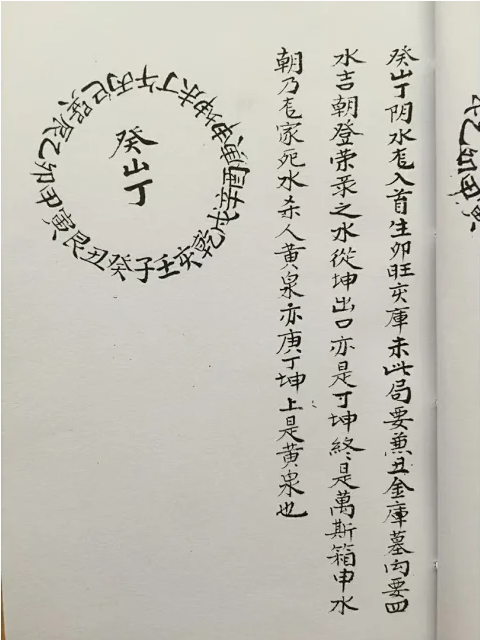 癸山丁阴水入首生卯旺亥庫未此局要兼丑金庫墓内要四
水吉朝登荣录之水從坤出口亦是丁坤終是萬斯箱申水
朝乃家死水杀人黄泉亦庚丁坤上是黄泉也
癸山丁
子癸丑艮寅甲卯乙辰巽巳丙午丁未坤申庚酉辛戌乾亥壬
乙卯甲寅